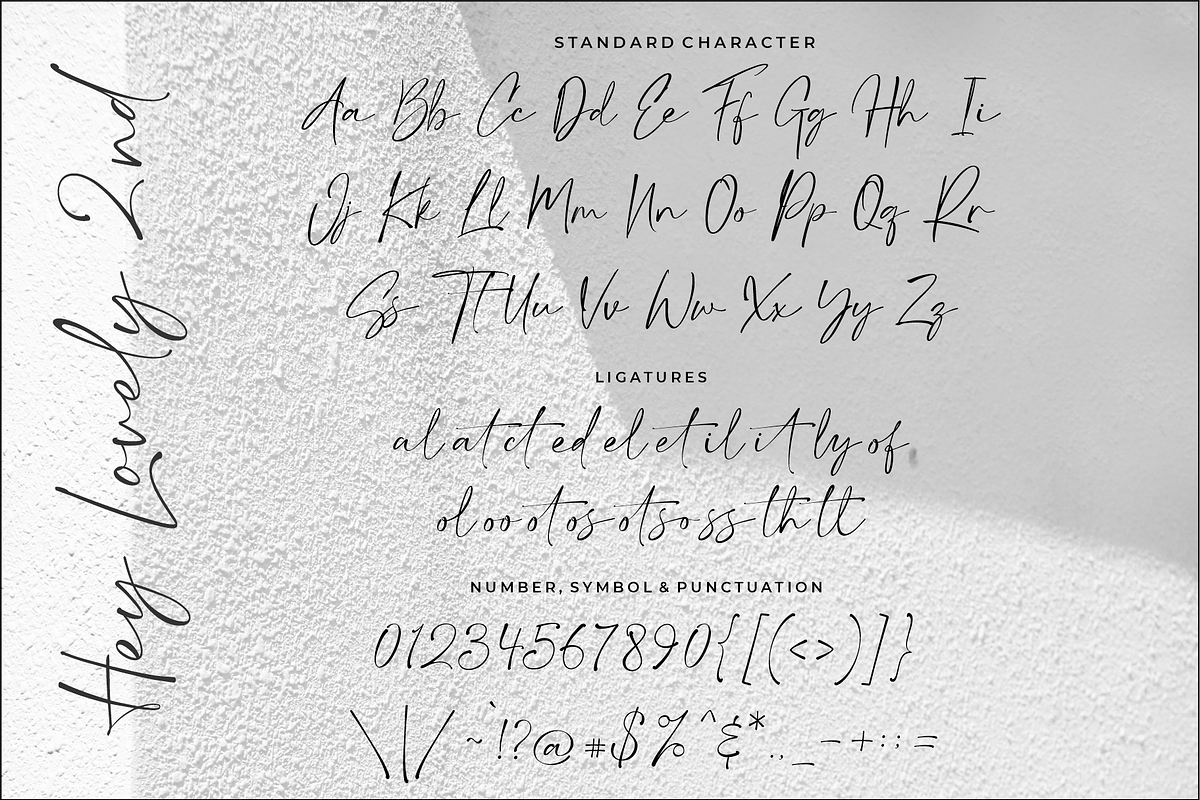 Hey Lovely 2nd
STANDARD CHARACTER
Aa Bb Cc Dd Ee Ff Gg Hh Ii
Jj Kk Ll Mm Nn Oo Pp Qq Rr
Ss Tt Uu Vv Ww Xx Yy Zz
LIGATURES
al at ct ed el et il it ly of
ol oo ot os ots o ss th tt
NUMBER, SYMBOL & PUNCTUATION
01234567890{[(<>)]}
\|/~`!?@#$%^&*.,_-+:;=